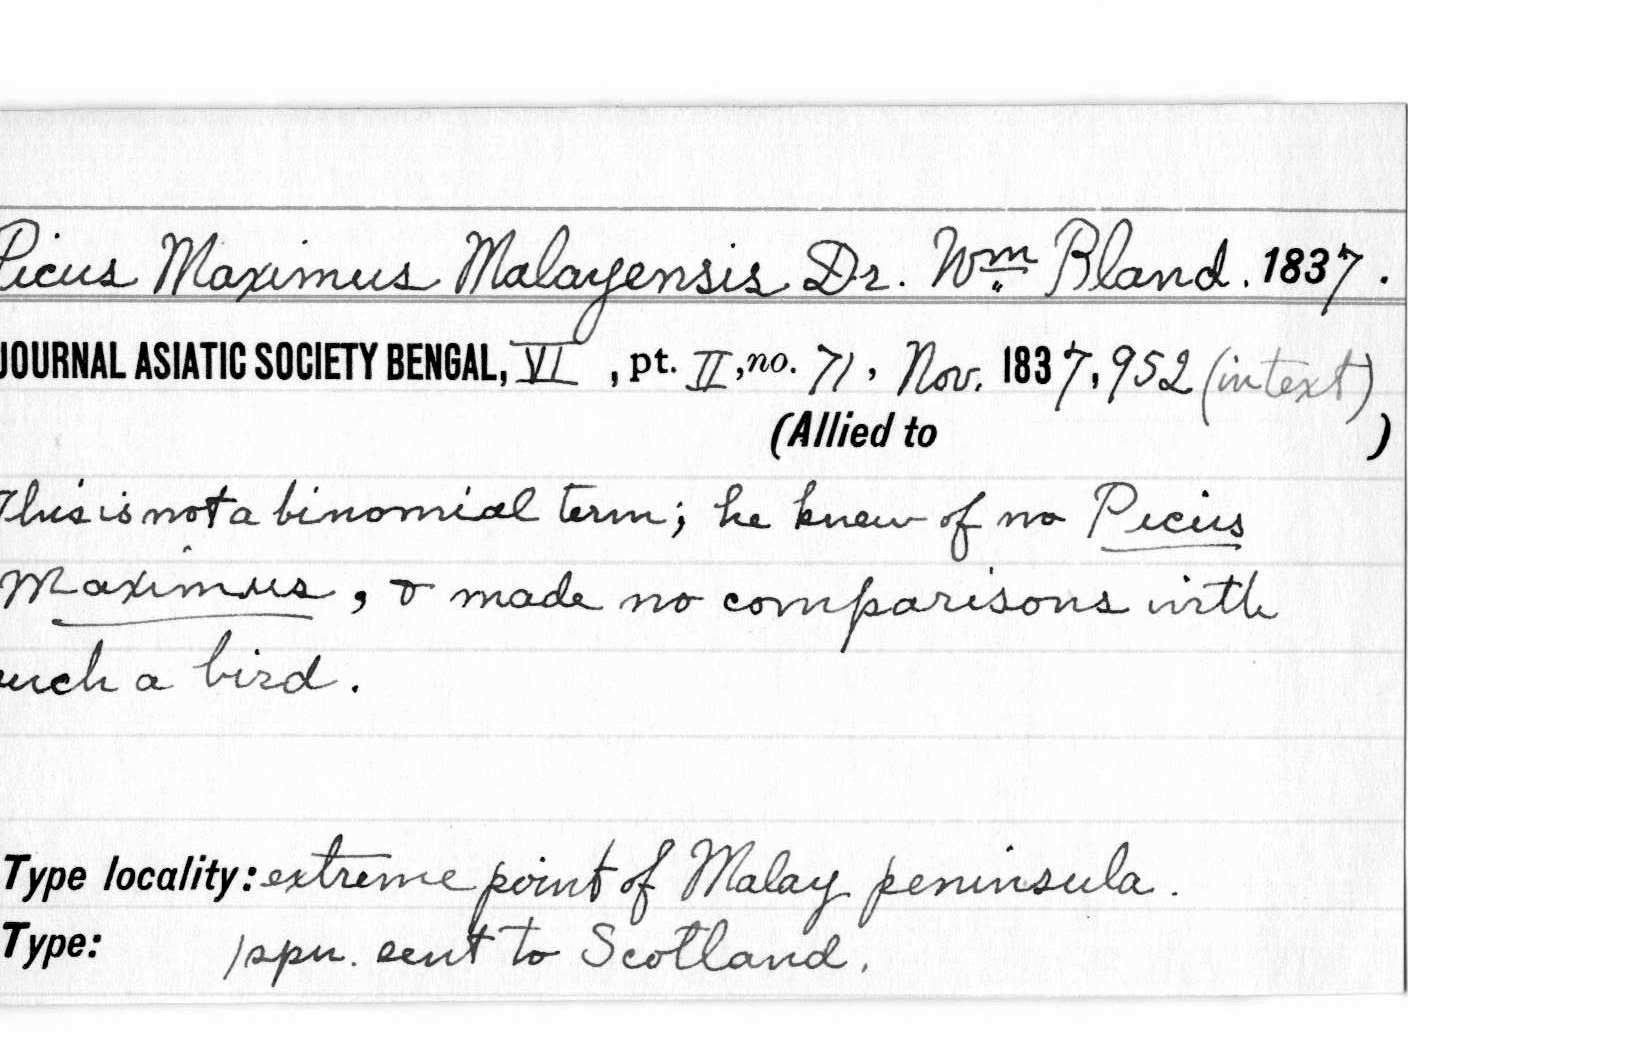 Picus Maximus Malayensis Dr. Wm Bland. 1837.
JOURNAL ASIATIC SOCIETY BENGAL, VI, pt. II, no. 71, Nov. 1837, 952 (in text)
(Allied to )
This is not a binomial term; he knew of no Picus
Maximus, & made no comparisons with
such a bird.
Type locality: extreme point of Malay peninsula.
Type: 1 spn. sent to Scotland.